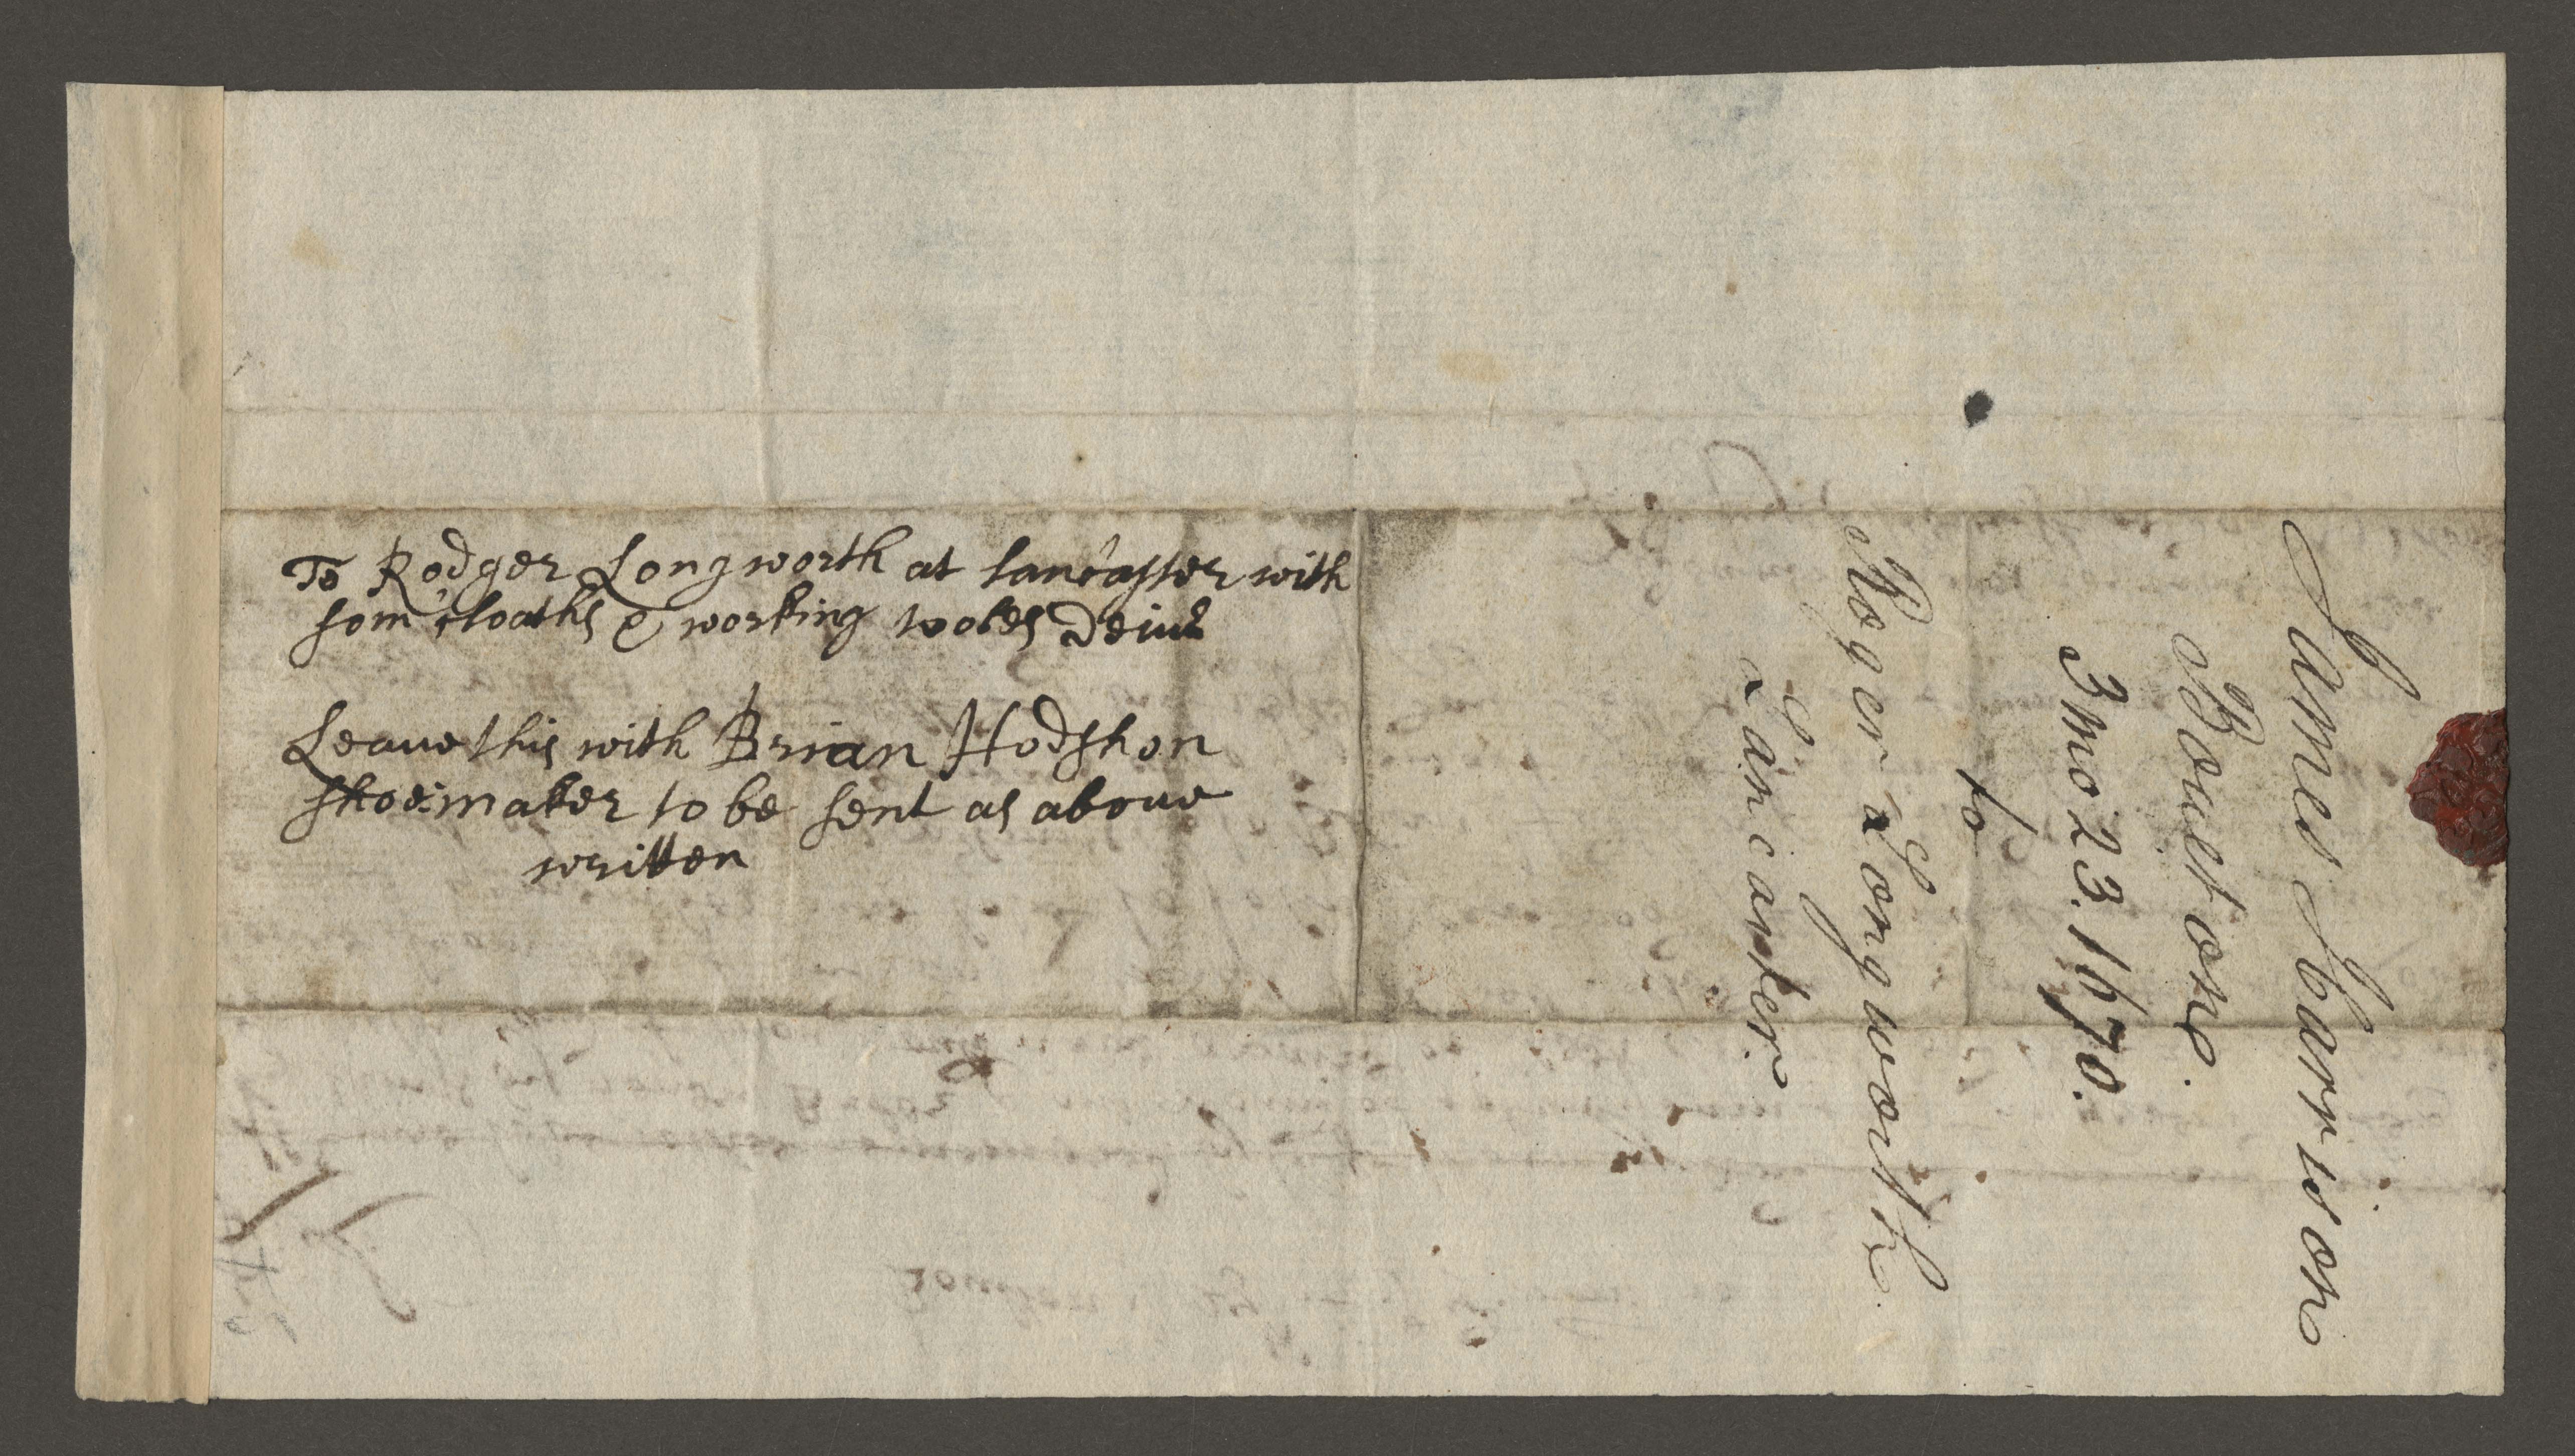 To Rodger Longworth at lancaster with
som cloaths & working tooles Deiud
Leave this with Brian Hodshon
shoemaker to be sent as above
written
James Harrison
Boulton.
3 mo 23. 1670.
to
Roger Longworth
Lancaster